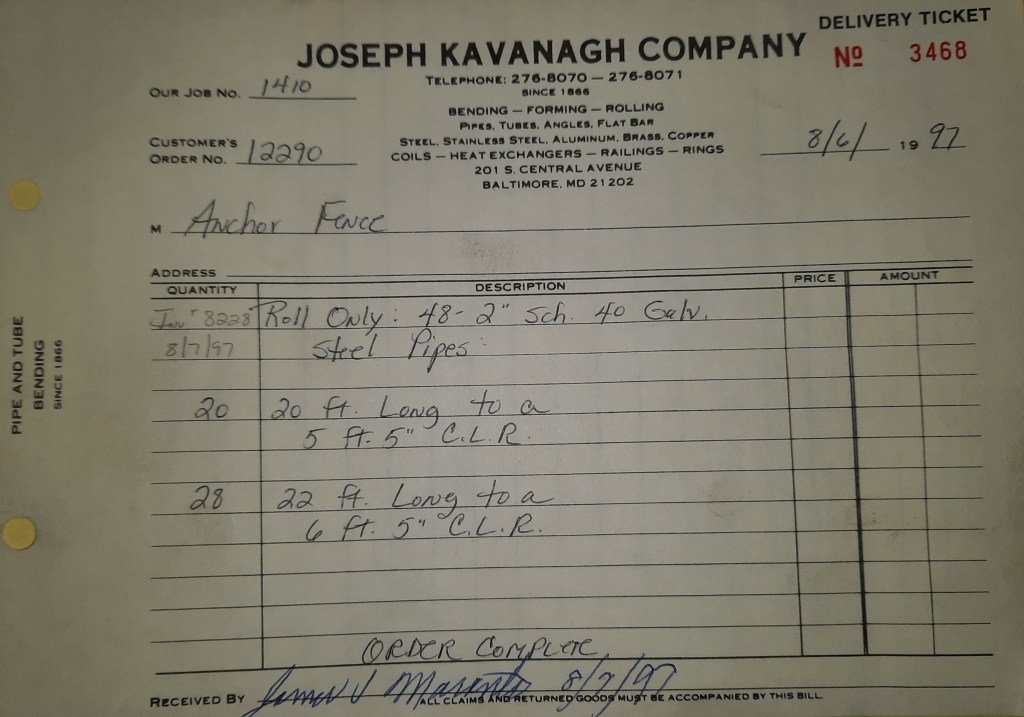 DELIVERY TICKET
JOSEPH KAVANAGH COMPANY
No 3468
TELEPHONE: 276-8070 — 276-8071
SINCE 1866
OUR JOB NO. 1410
BENDING — FORMING — ROLLING
PIPES, TUBES, ANGLES, FLAT BAR
STEEL, STAINLESS STEEL, ALUMINUM, BRASS, COPPER
COILS — HEAT EXCHANGERS — RAILINGS — RINGS
201 S. CENTRAL AVENUE
BALTIMORE, MD 21202
CUSTOMER'S
ORDER NO. 12290
8/6/ 19 97
M Anchor Fence
ADDRESS
QUANTITY DESCRIPTION PRICE AMOUNT
Inv # 8228 Roll Only: 48-2" Sch. 40 Galv.
8/7/97 Steel Pipes:
20 20 ft. Long to a
5 ft. 5" C.L.R.
28 22 ft. Long to a
6 ft. 5" C.L.R.
ORDER COMPLETE
RECEIVED BY 8/7/97
ALL CLAIMS AND RETURNED GOODS MUST BE ACCOMPANIED BY THIS BILL
PIPE AND TUBE
BENDING
SINCE 1866